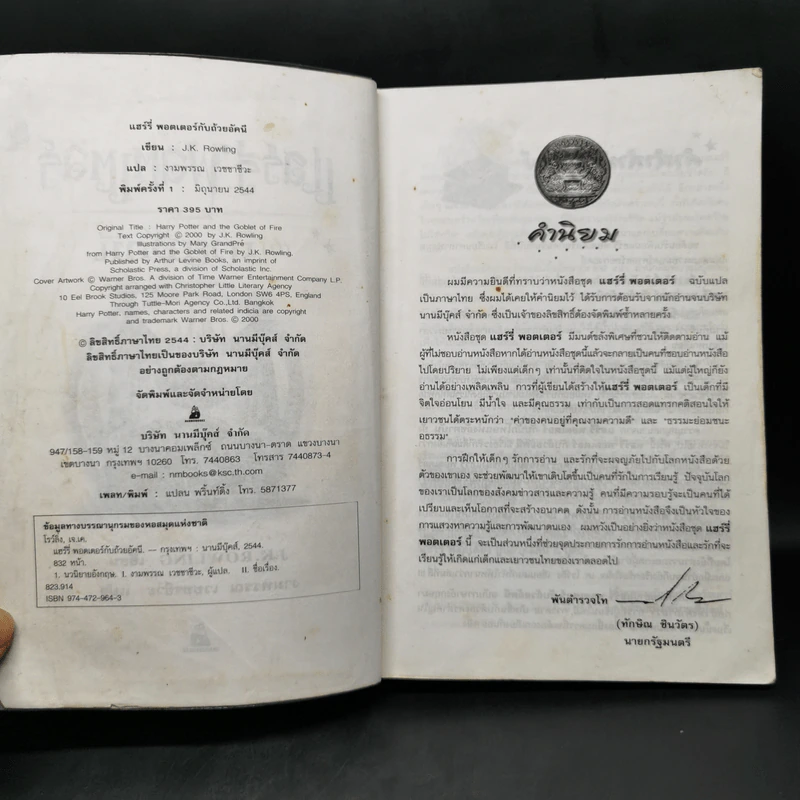 แฮร์รี่ พอตเตอร์กับถ้วยอัคนี
เขียน : J.K. Rowling
แปล : งามพรรณ เวชชาชีวะ
พิมพ์ครั้งที่ 1 : มิถุนายน 2544
ราคา 395 บาท
Original Title : Harry Potter and the Goblet of Fire
Text Copyright © 2000 by J.K. Rowling
Illustrations by Mary GrandPré
from Harry Potter and the Goblet of Fire by J.K. Rowling.
Published by Arthur Levine Books, an imprint of
Scholastic Press, a division of Scholastic Inc.
Cover Artwork © Warner Bros. A division of Time Warner Entertainment Company L.P.
Copyright arranged with Christopher Little Literary Agency
10 Eel Brook Studios, 125 Moore Park Road, London SW6 4PS, England
Through Tuttle-Mori Agency Co., Ltd. Bangkok
Harry Potter, names, characters and related indicia are copyright
and trademark Warner Bros. © 2000
© ลิขสิทธิ์ภาษาไทย 2544 : บริษัท นานมีบุ๊คส์ จำกัด
ลิขสิทธิ์ภาษาไทยเป็นของบริษัท นานมีบุ๊คส์ จำกัด
อย่างถูกต้องตามกฎหมาย
จัดพิมพ์และจัดจำหน่ายโดย
บริษัท นานมีบุ๊คส์ จำกัด
947/158-159 หมู่ 12 บางนาคอมเพล็กซ์ ถนนบางนา-ตราด แขวงบางนา
เขตบางนา กรุงเทพฯ 10260 โทร. 7440863 โทรสาร 7440873-4
e-mail : nmbooks@ksc.th.com
เพลท/พิมพ์ : แปลน พริ้นท์ติ้ง โทร. 5871377
ข้อมูลทางบรรณานุกรมของหอสมุดแห่งชาติ
โรว์ลิง, เจ.เค.
แฮร์รี่ พอตเตอร์กับถ้วยอัคนี. -- กรุงเทพฯ : นานมีบุ๊คส์, 2544.
832 หน้า.
1. นวนิยายอังกฤษ. I. งามพรรณ เวชชาชีวะ, ผู้แปล. II. ชื่อเรื่อง.
823.914
ISBN 974-472-964-3
คำนิยม
ผมมีความยินดีที่ทราบว่าหนังสือชุด แฮร์รี่ พอตเตอร์ ฉบับแปล
เป็นภาษาไทย ซึ่งผมได้เคยให้คำนิยมไว้ ได้รับการต้อนรับจากนักอ่านจนบริษัท
นานมีบุ๊คส์ จำกัด ซึ่งเป็นเจ้าของลิขสิทธิ์ต้องจัดพิมพ์ซ้ำหลายครั้ง
หนังสือชุด แฮร์รี่ พอตเตอร์ มีมนต์ขลังพิเศษที่ชวนให้ติดตามอ่าน แม้
ผู้ที่ไม่ชอบอ่านหนังสือหากได้อ่านหนังสือชุดนี้แล้วจะกลายเป็นคนที่ชอบอ่านหนังสือ
ไปโดยปริยาย ไม่เพียงแต่เด็กๆ เท่านั้นที่ติดใจในหนังสือชุดนี้ แม้แต่ผู้ใหญ่ก็ยัง
อ่านได้อย่างเพลิดเพลิน การที่ผู้เขียนได้สร้างให้แฮร์รี่ พอตเตอร์ เป็นเด็กที่มี
จิตใจอ่อนโยน มีน้ำใจ และมีคุณธรรม เท่ากับเป็นการสอดแทรกคติสอนใจให้
เยาวชนได้ตระหนักว่า "ค่าของคนอยู่ที่คุณงามความดี" และ "ธรรมะย่อมชนะ
อธรรม"
การฝึกให้เด็กๆ รักการอ่าน และรักที่จะผจญภัยไปกับโลกหนังสือด้วย
ตัวของเขาเอง จะช่วยพัฒนาให้เขาเติบโตขึ้นเป็นคนที่รักในการเรียนรู้ ปัจจุบันโลก
ของเราเป็นโลกของสังคมข่าวสารและความรู้ คนที่มีความรอบรู้จะเป็นคนที่ได้
เปรียบและเห็นโอกาสที่จะสร้างอนาคต ดังนั้น การอ่านหนังสือจึงเป็นหัวใจของ
การแสวงหาความรู้และการพัฒนาตนเอง ผมหวังเป็นอย่างยิ่งว่าหนังสือชุด แฮร์รี่
พอตเตอร์ นี้ จะเป็นส่วนหนึ่งที่ช่วยจุดประกายการรักการอ่านหนังสือและรักที่จะ
เรียนรู้ให้เกิดแก่เด็กและเยาวชนไทยของเราตลอดไป
พันตำรวจโท
(ทักษิณ ชินวัตร)
นายกรัฐมนตรี